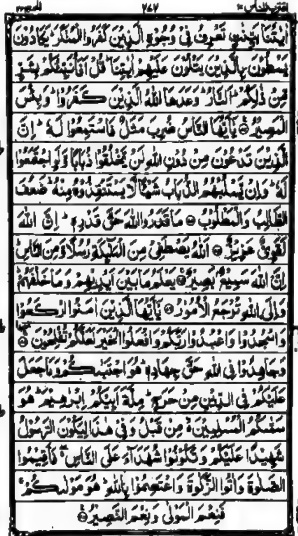 اٰيٰتُنَا بَيِّنٰتٍ تَعْرِفُ فِیْ وُجُوْهِ الَّذِيْنَ كَفَرُوا الْمُنْكَرَ ؕ يَكَادُوْنَ
يَسْطُوْنَ بِالَّذِيْنَ يَتْلُوْنَ عَلَيْهِمْ اٰيٰتِنَا ؕ قُلْ اَفَاُنَبِّئُكُمْ بِشَرٍّ
مِّنْ ذٰلِكُمْ ؕ اَلنَّارُ ؕ وَعَدَهَا اللّٰهُ الَّذِيْنَ كَفَرُوْا ؕ وَبِئْسَ
الْمَصِيْرُ يٰۤاَيُّهَا النَّاسُ ضُرِبَ مَثَلٌ فَاسْتَمِعُوْا لَهٗ ؕ اِنَّ
الَّذِيْنَ تَدْعُوْنَ مِنْ دُوْنِ اللّٰهِ لَنْ يَّخْلُقُوْا ذُبَابًا وَّلَوِ اجْتَمَعُوْا
لَهٗ ؕ وَاِنْ يَّسْلُبْهُمُ الذُّبَابُ شَيْئًا لَّا يَسْتَنْقِذُوْهُ مِنْهُ ؕ ضَعُفَ
الطَّالِبُ وَالْمَطْلُوْبُ مَا قَدَرُوا اللّٰهَ حَقَّ قَدْرِهٖ ؕ اِنَّ اللّٰهَ
لَقَوِیٌّ عَزِيْزٌ اَللّٰهُ يَصْطَفِیْ مِنَ الْمَلٰٓئِكَةِ رُسُلًا وَّمِنَ النَّاسِ
اِنَّ اللّٰهَ سَمِيْعٌۢ بَصِيْرٌ يَعْلَمُ مَا بَيْنَ اَيْدِيْهِمْ وَمَا خَلْفَهُمْ
وَاِلَی اللّٰهِ تُرْجَعُ الْاُمُوْرُ يٰۤاَيُّهَا الَّذِيْنَ اٰمَنُوا ارْكَعُوْا
وَاسْجُدُوْا وَاعْبُدُوْا رَبَّكُمْ وَافْعَلُوا الْخَيْرَ لَعَلَّكُمْ تُفْلِحُوْنَ
وَجَاهِدُوْا فِی اللّٰهِ حَقَّ جِهَادِهٖ ؕ هُوَ اجْتَبٰىكُمْ وَمَا جَعَلَ
عَلَيْكُمْ فِی الدِّيْنِ مِنْ حَرَجٍ ؕ مِلَّةَ اَبِيْكُمْ اِبْرٰهِيْمَ ؕ هُوَ
سَمّٰىكُمُ الْمُسْلِمِيْنَ مِنْ قَبْلُ وَفِیْ هٰذَا لِيَكُوْنَ الرَّسُوْلُ
شَهِيْدًا عَلَيْكُمْ وَتَكُوْنُوْا شُهَدَآءَ عَلَی النَّاسِ فَاَقِيْمُوا
الصَّلٰوةَ وَاٰتُوا الزَّكٰوةَ وَاعْتَصِمُوْا بِاللّٰهِ ؕ هُوَ مَوْلٰىكُمْ
فَنِعْمَ الْمَوْلٰی وَنِعْمَ النَّصِيْرُ